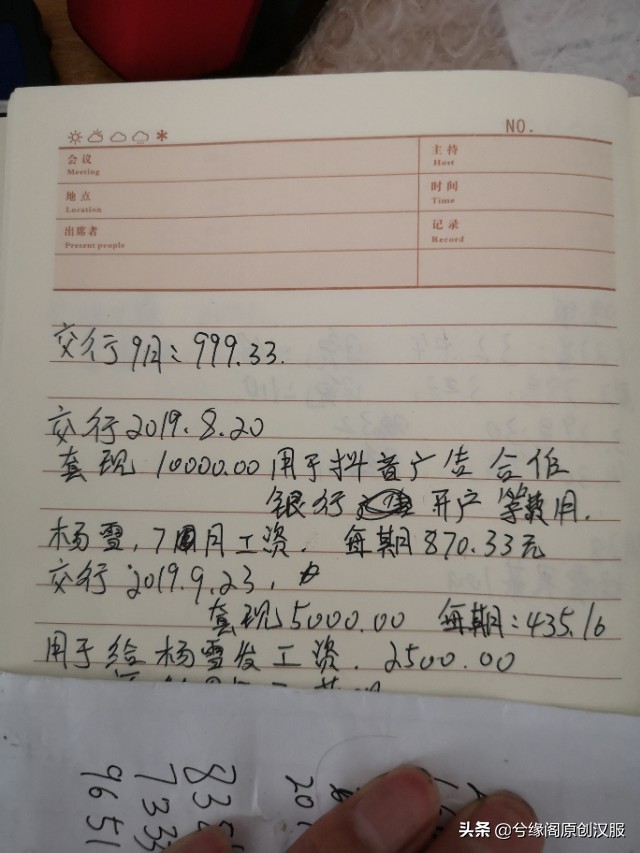 NO.
会议
Meeting
主持
Host
地点
Location
时间
Time
出席者
Present people
记录
Record
交行9月:999.33.
交行2019.8.20
套现10000.00用于抖音广告合作
银行开户等费用.
杨雪,7月工资. 每期870.33元
交行2019.9.23,
套现5000.00 每期:435.16
用于给杨雪发工资.2500.00
头条 @兮缘阁原创汉服